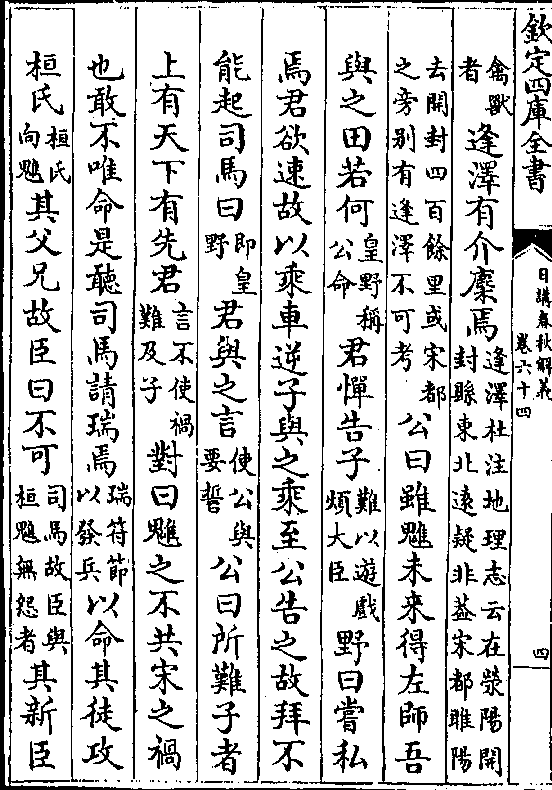 欽定四庫全書
日講春秋解義
卷六十四
四
禽獸者逢澤有介麇焉逢澤杜注地理志云在滎陽開封縣東北遠疑非葢宋都睢陽
去開封四百餘里或宋都之旁别有逢澤不可考公曰雖魋未來得左師吾
與之田若何皇野稱公命君憚告子難以遊戲煩大臣野曰嘗私
焉君欲速故以乘車逆子與之乘至公告之故拜不
能起司馬曰即皇野君與之言使公與要誓公曰所難子者
上有天下有先君言不使禍難及子對曰魋之不共宋之禍
也敢不唯命是聽司馬請瑞焉瑞符節以發兵以命其徒攻
桓氏桓氏向魋其父兄故臣曰不可司馬故臣與桓魋無怨者其新臣